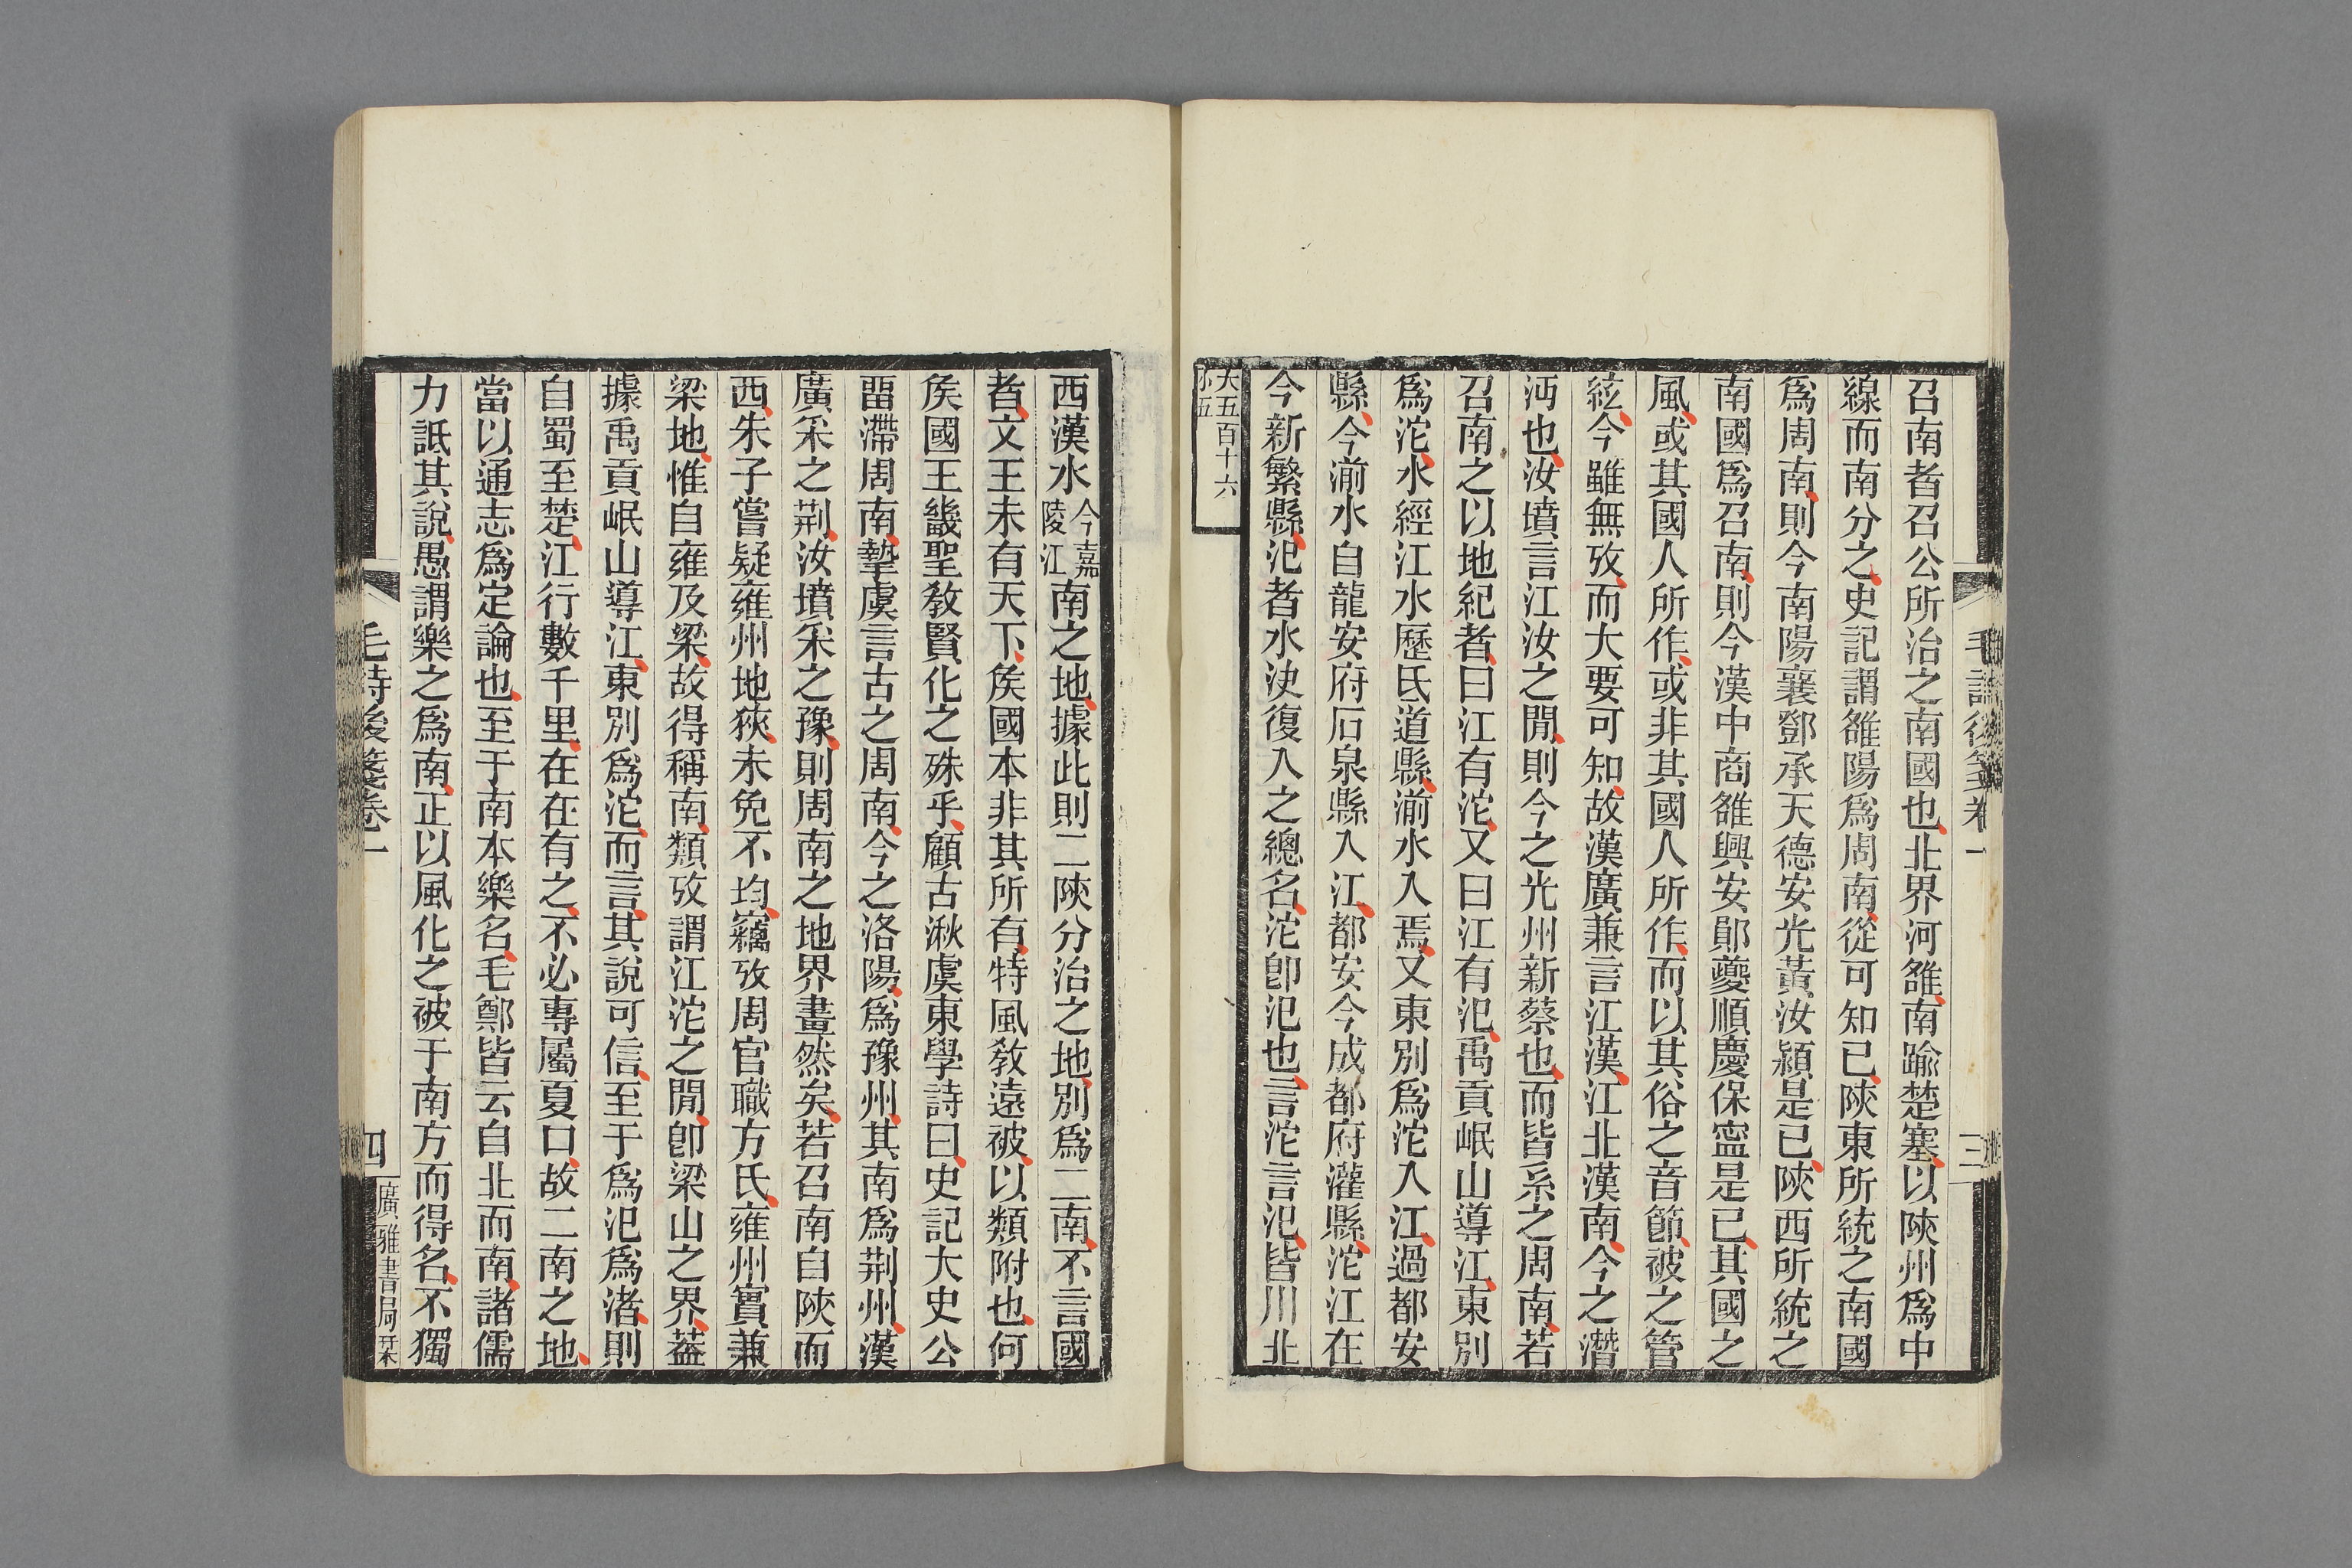 毛詩後箋卷一
三
召南者召公所治之南國也北界河雒南踰楚塞以陝州爲中
線而南分之史記謂雒陽爲周南從可知已陝東所統之南國
爲周南則今南陽襄鄧承天德安光黃汝潁是已陝西所統之
南國爲召南則今漢中商雒興安鄖夔順慶保寧是已其國之
風或其國人所作或非其國人所作而以其俗之音節被之管
絃今雖無攷而大要可知故漢廣兼言江漢江北漢南今之潛
沔也汝墳言江汝之閒則今之光州新蔡也而皆系之周南若
召南之以地紀者曰江有沱又曰江有汜禹貢岷山導江東別
爲沱水經江水歷氐道縣湔水入焉又東別爲沱入江過都安
縣今湔水自龍安府石泉縣入江都安今成都府灌縣沱江在
今新繁縣汜者水決復入之總名沱卽汜也言沱言汜皆川北
大五百十六
小五
西漢水今嘉陵江南之地據此則二陝分治之地別爲二南不言國
者文王未有天下矦國本非其所有特風敎遠被以類附也何
矦國王畿聖敎賢化之殊乎顧古湫虞東學詩曰史記大史公
畱滯周南摯虞言古之周南今之洛陽爲豫州其南爲荆州漢
廣采之荆汝墳采之豫則周南之地界畫然矣若召南自陝而
西朱子嘗疑雍州地狹未免不均竊攷周官職方氏雍州實兼
梁地惟自雍及梁故得稱南類攷謂江沱之閒卽梁山之界葢
據禹貢岷山導江東別爲沱而言其說可信至于爲汜爲渚則
自蜀至楚江行數千里在在有之不必專屬夏口故二南之地
當以通志爲定論也至于南本樂名毛鄭皆云自北而南諸儒
力詆其說愚謂樂之爲南正以風化之被于南方而得名不獨
毛詩後箋卷一
四
廣雅書局栞